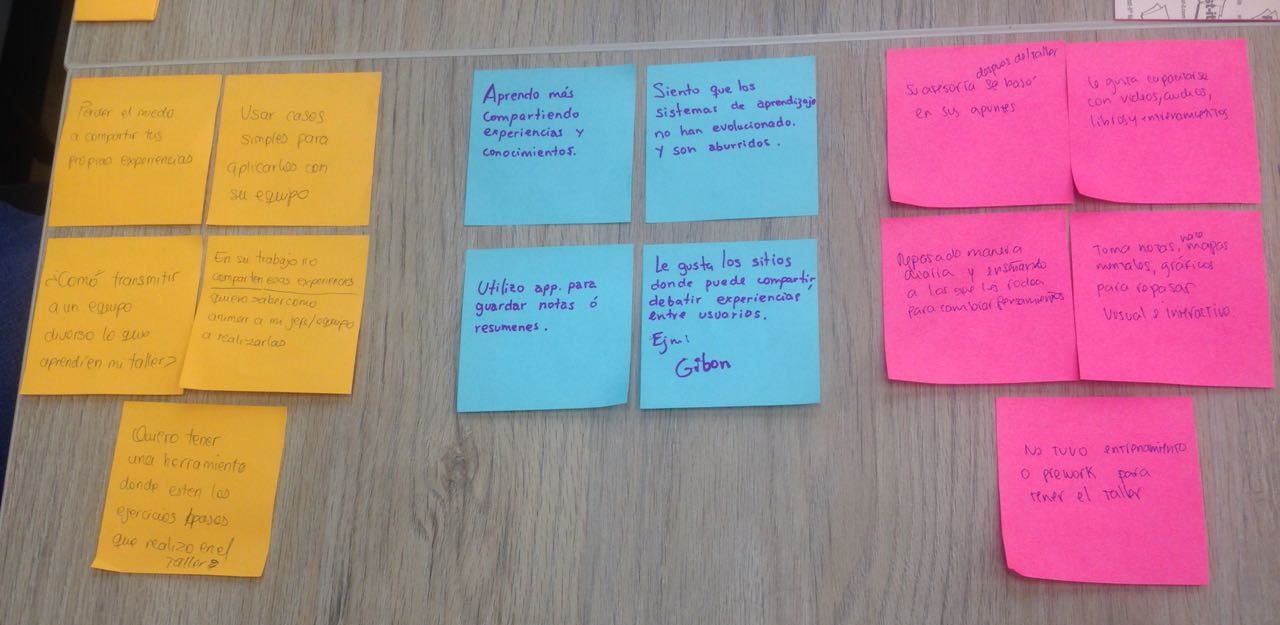 Perder el miedo
a compartir tus
propias experiencias
Usar casos
simples para
aplicarlos con
su equipo
¿Comó transmitir
a un equipo
diverso lo que
aprendí en mi taller?
En su trabajo no
comparten esas experiencias
quiero saber como
animar a mi jefe/equipo
a realizarlas
Quiero tener
una herramienta
donde esten los
ejercicios/pasos
que realizo en el
taller
Aprendo más
compartiendo
experiencias y
conocimientos.
Siento que los
sistemas de aprendizaje
no han evolucionado.
Y son aburridos.
Utilizo app. para
guardar notas ó
resumenes.
Le gusta los sitios
donde puede compartir,
debatir experiencias
entre usuarios.
Ejm:
Gibon
después del taller
Su asesoría se basó
en sus apuntes
Le gusta capacitarse
con videos, audios,
libros y entrenamientos
Repasado manera
diaria y enseñando
a los que los rodea
para cambiar pensamientos
Toma notas, hace mapas
mentales, gráficos
para repasar
Visual e interactivo
No tuvo entrenamiento
o prework para
tener el taller